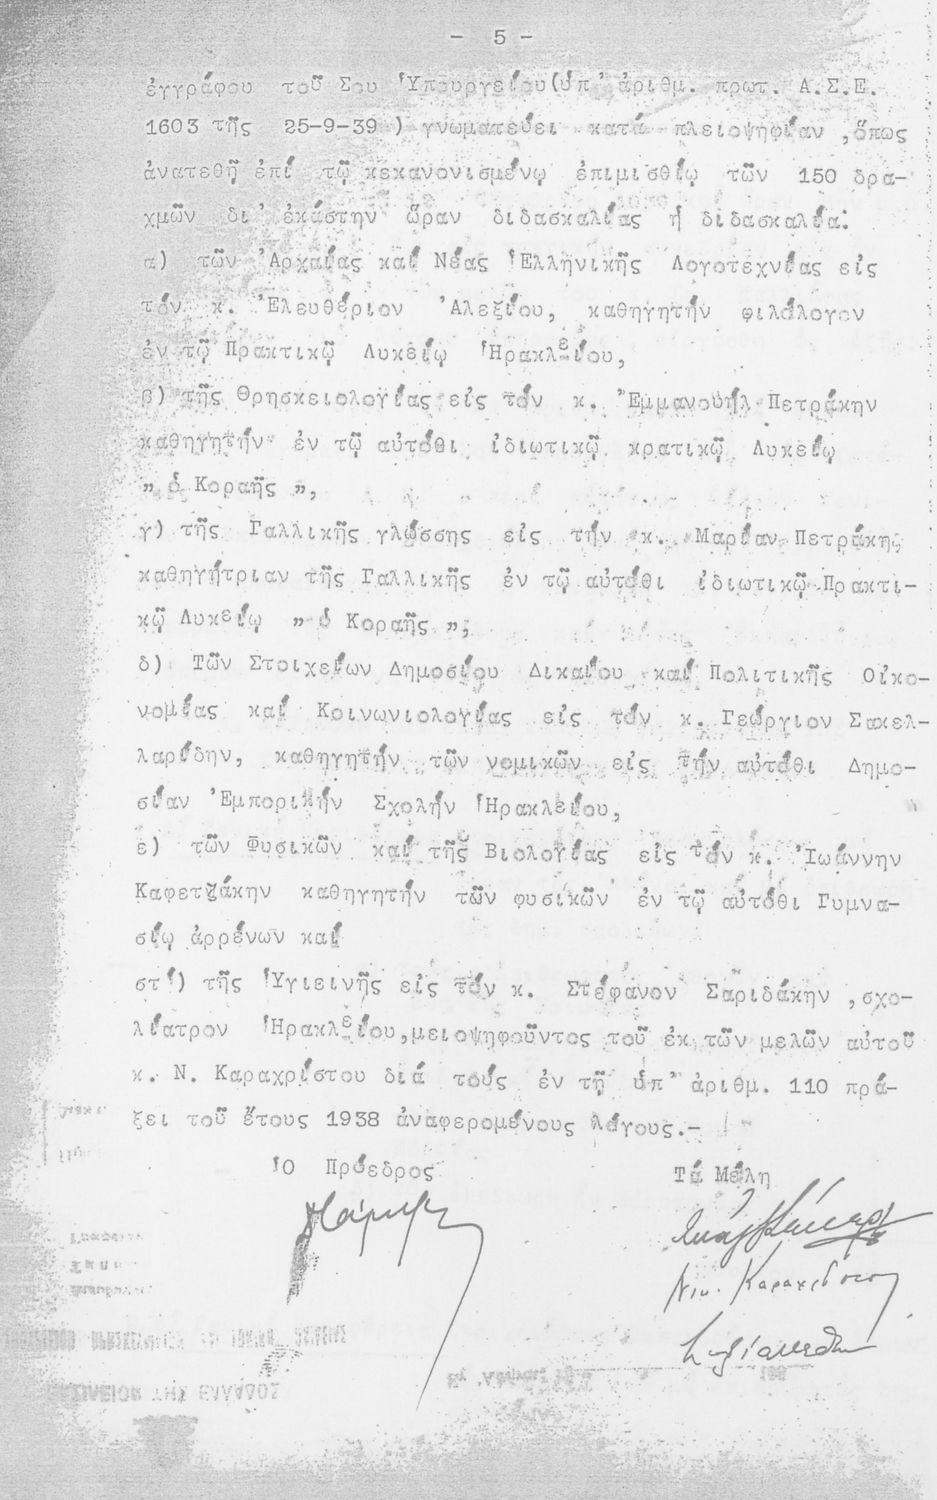 - 5 -
ἐγγράφου τοῦ Σου Ὑπουργείου(ὑπ' ἀριθμ. πρωτ. Α.Σ.Ε.
1603 τῆς 25-9-39 ) γνωματεύει κατά πλειοψηφίαν ,ὅπως
ἀνατεθῇ ἐπί τῷ κεκανονισμένῳ ἐπιμισθίῳ τῶν 150 δρα-
χμῶν δι' ἑκάστην ὥραν διδασκαλίας ἡ διδασκαλία:
α) τῶν Ἀρχαίας καί Νέας Ἑλληνικῆς Λογοτεχνίας εἰς
τόν κ. Ἐλευθέριον Ἀλεξίου, καθηγητήν φιλόλογον
ἐν τῷ Πρακτικῷ Λυκείῳ Ἡρακλείου,
β) τῆς Θρησκειολογίας εἰς τόν κ. Ἐμμανουήλ Πετράκην
καθηγητήν ἐν τῷ αὐτόθι ἰδιωτικῷ κρατικῷ Λυκείῳ
" ὁ Κοραῆς ",
γ) τῆς Γαλλικῆς γλώσσης εἰς τήν κ. Μαρίαν Πετράκη,
καθηγήτριαν τῆς Γαλλικῆς ἐν τῷ αὐτόθι ἰδιωτικῷ Πρακτι-
κῷ Λυκείῳ " ὁ Κοραῆς ",
δ) Τῶν Στοιχείων Δημοσίου Δικαίου καί Πολιτικῆς Οἰκο-
νομίας καί Κοινωνιολογίας εἰς τόν κ. Γεώργιον Σακελ-
λαρίδην, καθηγητήν τῶν νομικῶν εἰς τήν αὐτόθι Δημο-
σίαν Ἐμπορικήν Σχολήν Ἡρακλείου,
ε) τῶν Φυσικῶν καί τῆς Βιολογίας εἰς τόν κ. Ἰωάννην
Καφετζάκην καθηγητήν τῶν φυσικῶν ἐν τῷ αὐτόθι Γυμνα-
σίῳ ἀρρένων καί
στ') τῆς Ὑγιεινῆς εἰς τόν κ. Στέφανον Σαριδάκην ,σχο-
λίατρον Ἡρακλείου,μειοψηφοῦντος τοῦ ἐκ τῶν μελῶν αὐτοῦ
κ. Ν. Καραχρίστου διά τούς ἐν τῇ ὑπ' ἀριθμ. 110 πρά-
ξει τοῦ ἔτους 1938 ἀναφερομένους λόγους.-
Ὁ Πρόεδρος Τά Μέλη
Νικ. Καραχρίστου